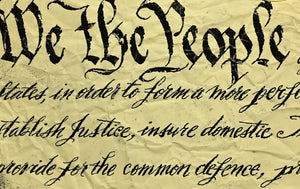 We the People
States, in order to form a more perf
stablish Justice, insure domestic
provide for the common defence, pr